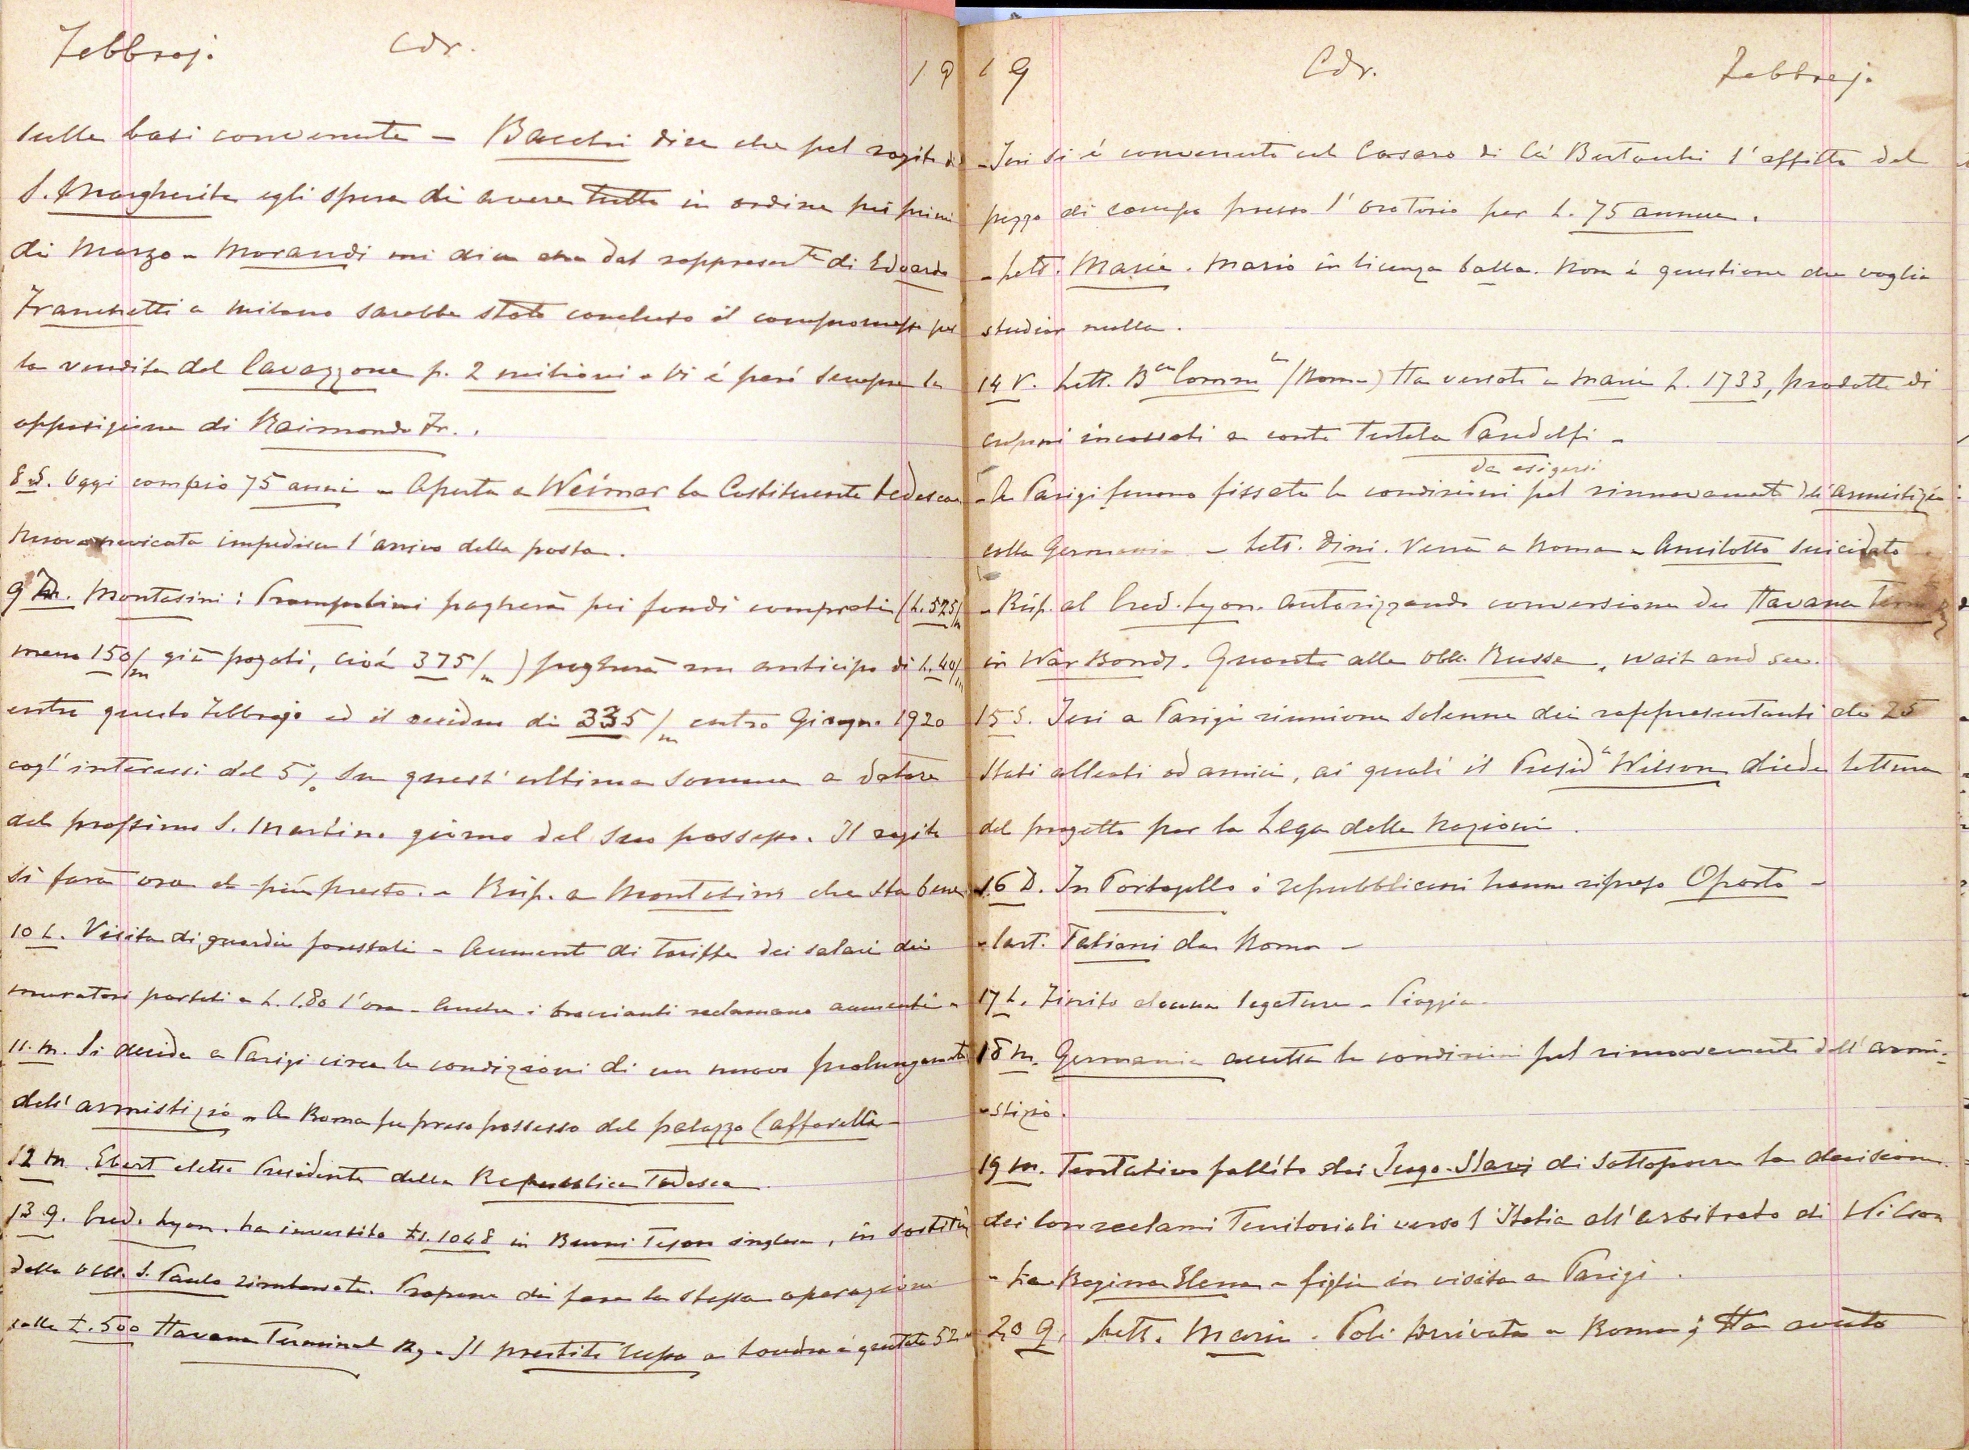 Febbrajo Cdr. 19
sulle basi convenute – Bacchi dice che pel rogito di
S. Margherita egli spera di avere tutto in ordine pei primi
di Marzo – Morandi mi dice che dal rappresent.te di Edoardo
Franchetti a Milano sarebbe stato concluso il compromesso per
la vendita del Cavazzone p. 2 milioni – Vi è però sempre la
opposizione di Raimondo Fr..
8 S. Oggi compio 75 anni – Aperta a Weimar la Costituente tedesca.
Nuova nevicata impedisce l'arrivo della posta.
9 D. Montasini: Prampolini pagherà pei fondi comprati (L. 525/m
meno 150/m già pagati, cioè 375/m) pagherà un anticipo di L. 40/m
entro questo Febbrajo ed il residuo di 335/m entro Giugno 1920
cogl'interessi del 5% su quest'ultima somma a datare
del prossimo S. Martino giorno del suo possesso. Il rogito
si farà ora al più presto. – Risp. a Montasini che sta bene
10 L. Visita di guardie forestali – Aumento di tariffa dei salari dei
muratori portati a L. 1.80 l'ora – Anche i braccianti reclamano aumenti –
11. M. Si decide a Parigi circa le condizioni di un nuovo prolungamento
dell'armistizio – A Roma fu preso possesso del palazzo Caffarelli –
12 M. Ebert eletto Presidente della Repubblica Tedesca.
13 G. Cred. Lyon. ha investito £s. 1048 in Buoni Tesoro inglese, in sostituz
delle Obbl. S. Paulo rimborsate. Propone di fare la stessa operazione
colle £. 500 Havana Terminal Ry – Il prestito russo a Londra è quotato 52 –
19 Cdr. Febbrajo
– Ieri si è convenuto col Casaro di Cà Bertacchi l'affitto del
pezzo di campo presso l'oratorio per L. 75 annue.
– Lett. Maria. Mario in licenza balla. Non è questione che voglia
studiar nulla.
14 V. Lett. B.ca Comm.le (Roma) Ha versato a Maria L. 1733, prodotto di
cuponi incassati a conto Tutela Pandolfi –
da esigersi
– A Parigi furono fissate le condizioni pel rinnovamento dell'armistizio
colla Germania – Lett. Dini. Verrà a Roma – Ancilotto suicidato
– Risp. al Cred. Lyon. autorizzando conversione du Havana Term Ry
in War Bonds. Quanto alle Obb. Russe, wait and see.
15 S. Ieri a Parigi riunione solenne dei rappresentanti di 25
Stati alleati od amici, ai quali il Presid.e Wilson diede lettura
del progetto per la Lega delle Nazioni.
16 D. In Portogallo i repubblicani hanno ripreso Oporto –
– Cart. Tatiani da Roma –
17 L. Finito alcune legature – Pioggia –
18 M. Germania accetta le condizioni pel rinnovamento dell'armi-
-stizio.
19 M. Tentativo fallito dei Jugo-Slavi di sottoporre la decisione
dei lor reclami territoriali verso l'Italia all'arbitrato di Wilson
– La Regina Elena e figlie in visita a Parigi.
20 G. Lett. Maria. Poli arrivata a Roma; Ha avuto